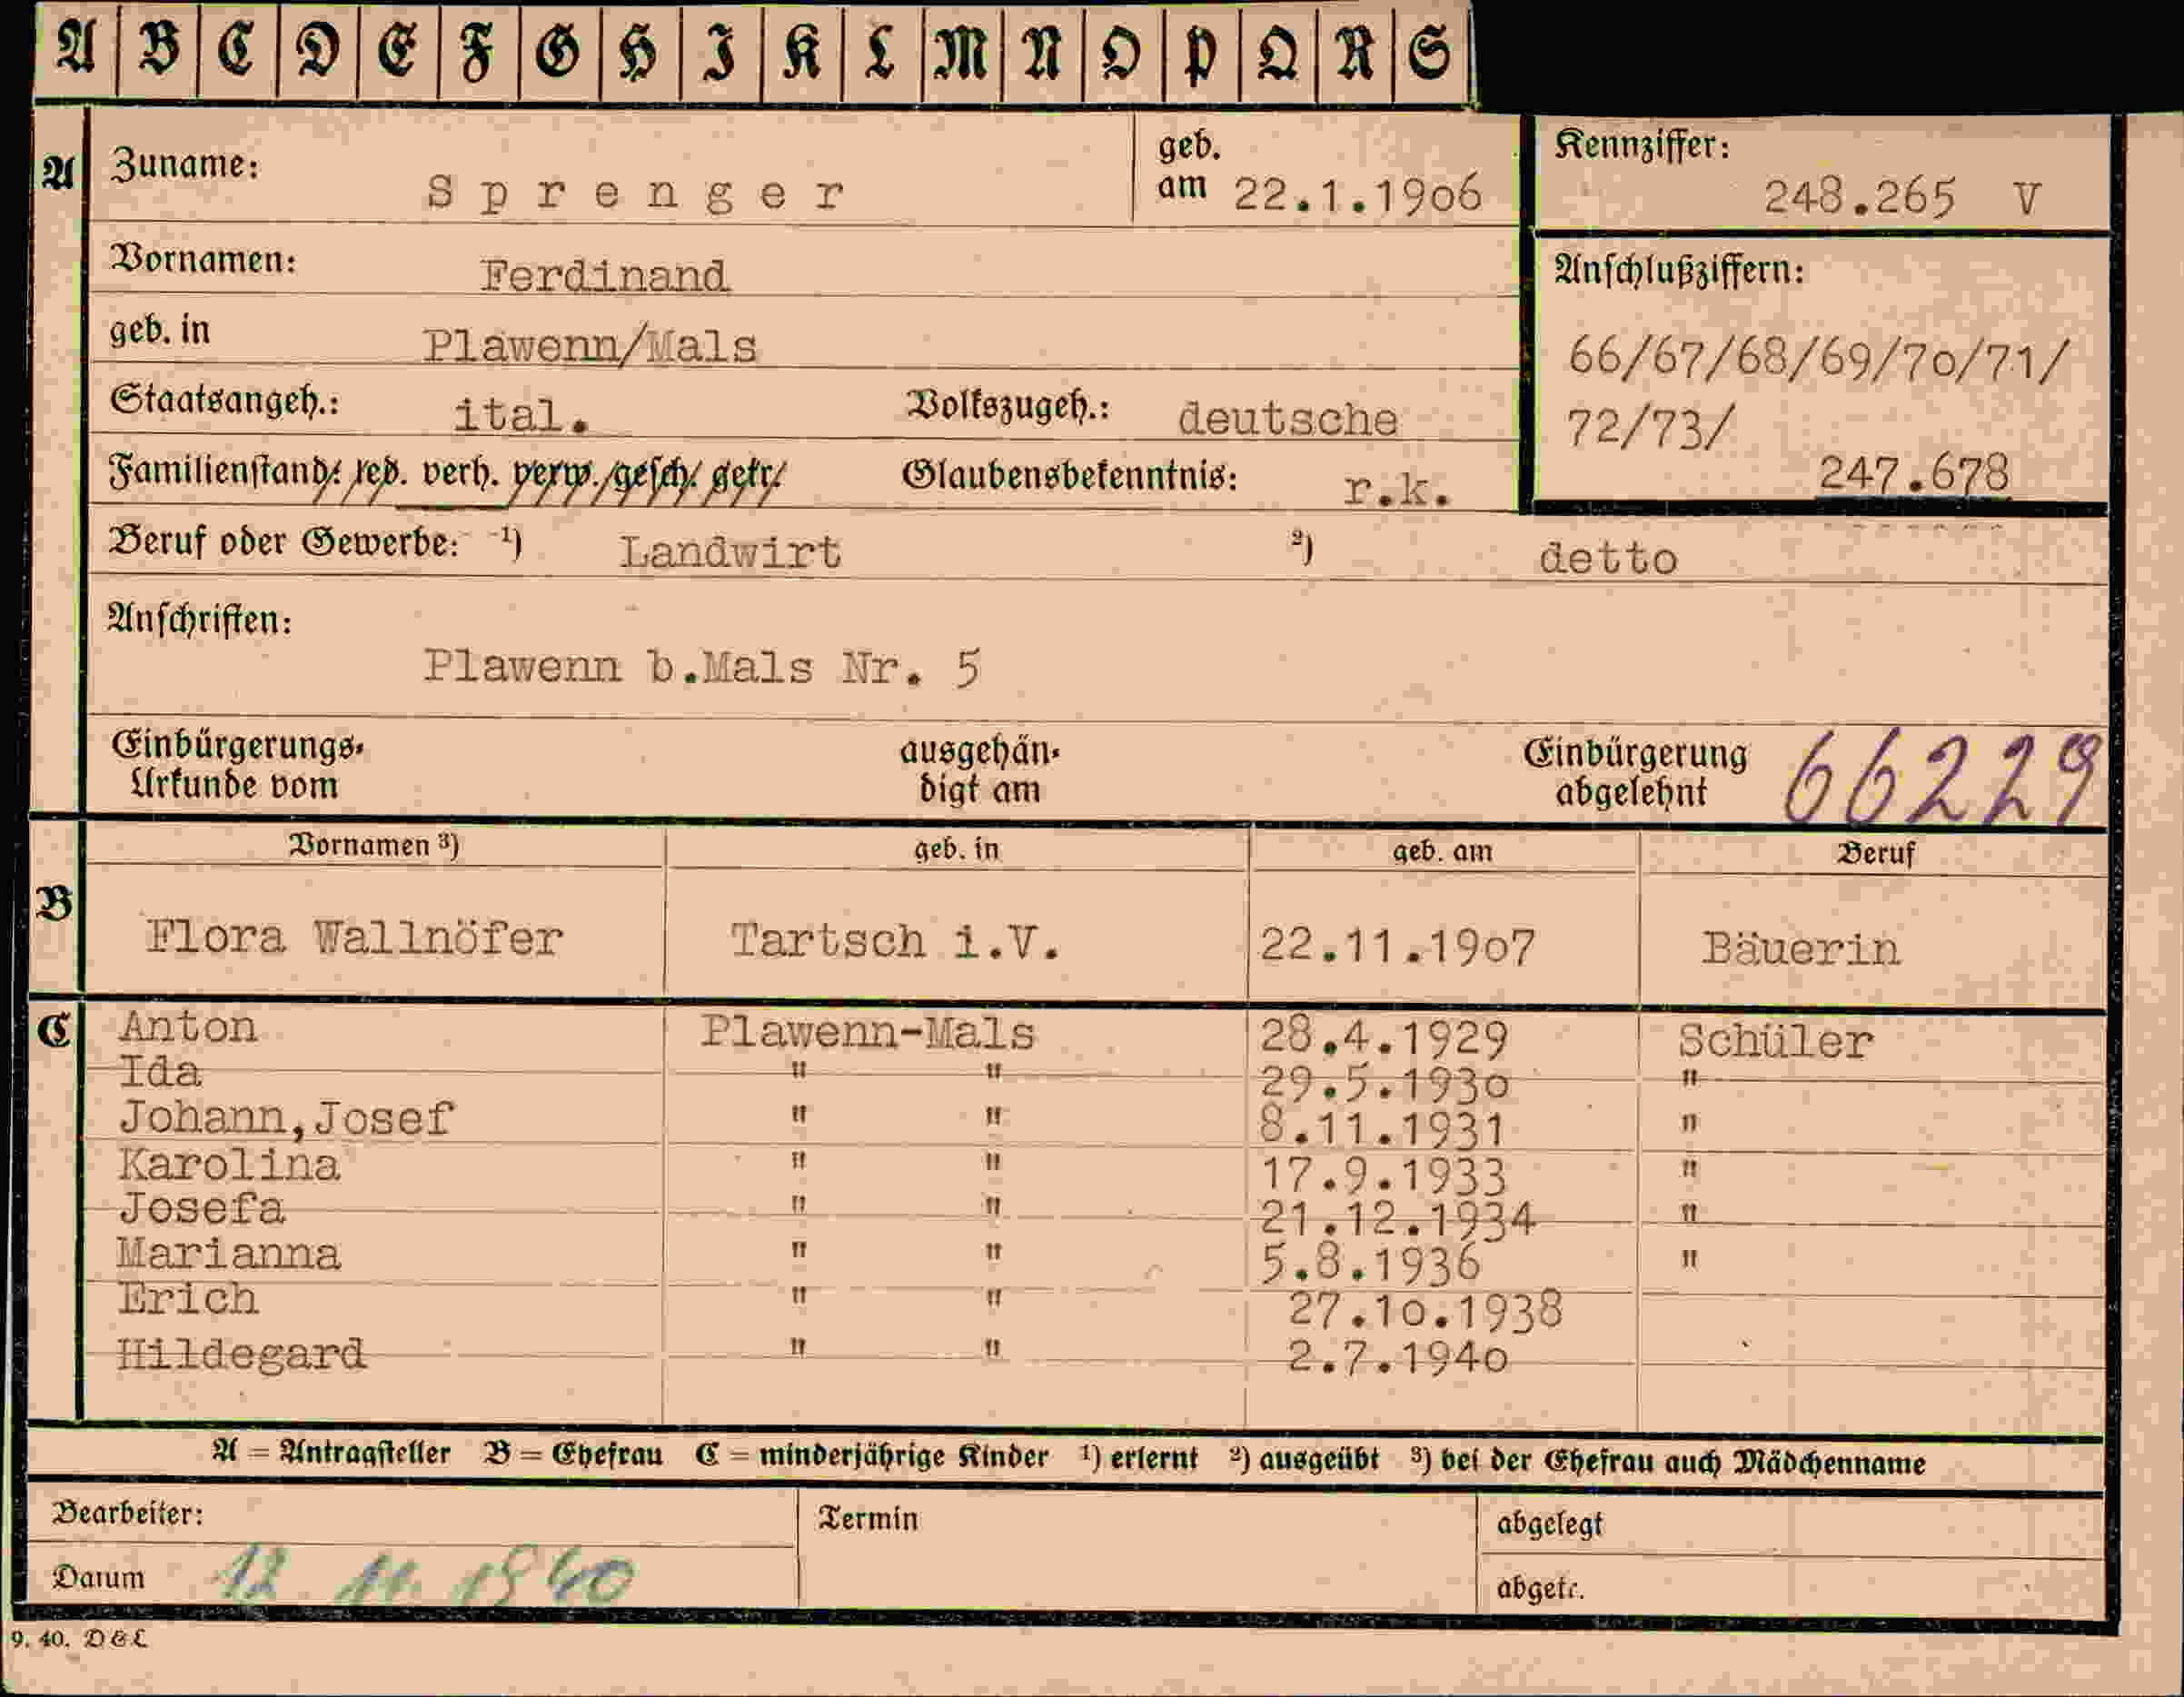 A B C D E F G H I K L M N O P Q R S
A Zuname: Sprenger geb. am 22.1.1906 Kennziffer: 248.265 V
Vornamen: Ferdinand Anschlußziffern:
geb. in Plawenn/Mals 66/67/68/69/70/71/
Staatsangeh.: ital. Volkszugeh.: deutsche 72/73/
Familienstand: led. verh. verw. gesch. getr. Glaubensbekenntnis: r.k. 247.678
Beruf oder Gewerbe: 1) Landwirt 2) detto
Anschriften:
Plawenn b.Mals Nr. 5
Einbürgerungs- ausgehän- Einbürgerung 66229
Urkunde vom digt am abgelehnt
Vornamen 3) geb. in geb. am Beruf
B Flora Wallnöfer Tartsch i.V. 22.11.1907 Bäuerin
C Anton Plawenn-Mals 28.4.1929 Schüler
Ida " " 29.5.1930 "
Johann,Josef " " 8.11.1931 "
Karolina " " 17.9.1933 "
Josefa " " 21.12.1934 "
Marianna " " 5.8.1936 "
Erich " " 27.10.1938
Hildegard " " 2.7.1940
A = Antragsteller B = Ehefrau C = minderjährige Kinder 1) erlernt 2) ausgeübt 3) bei der Ehefrau auch Mädchenname
Bearbeiter: Termin abgelegt
Datum 12 11. 1940 abgetr.
9. 40. D & L